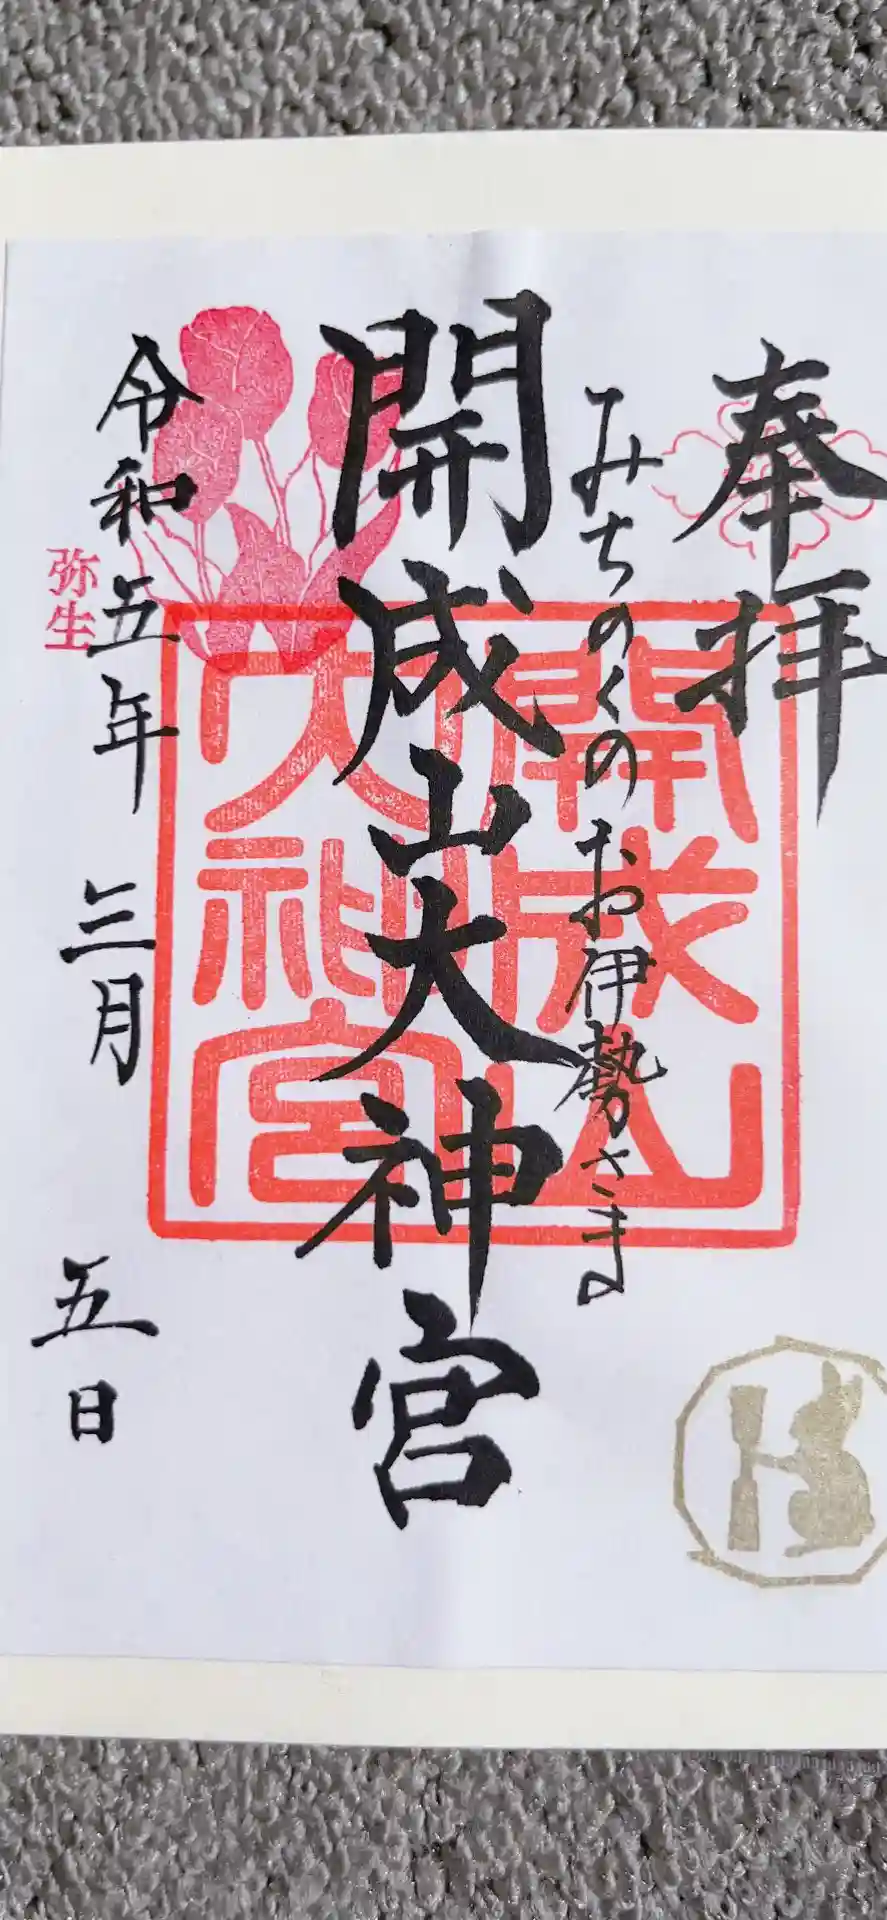 奉拝
みちのくのお伊勢さま
開成山大神宮
開成山
大神宮
令和五年 三月 五日
弥生